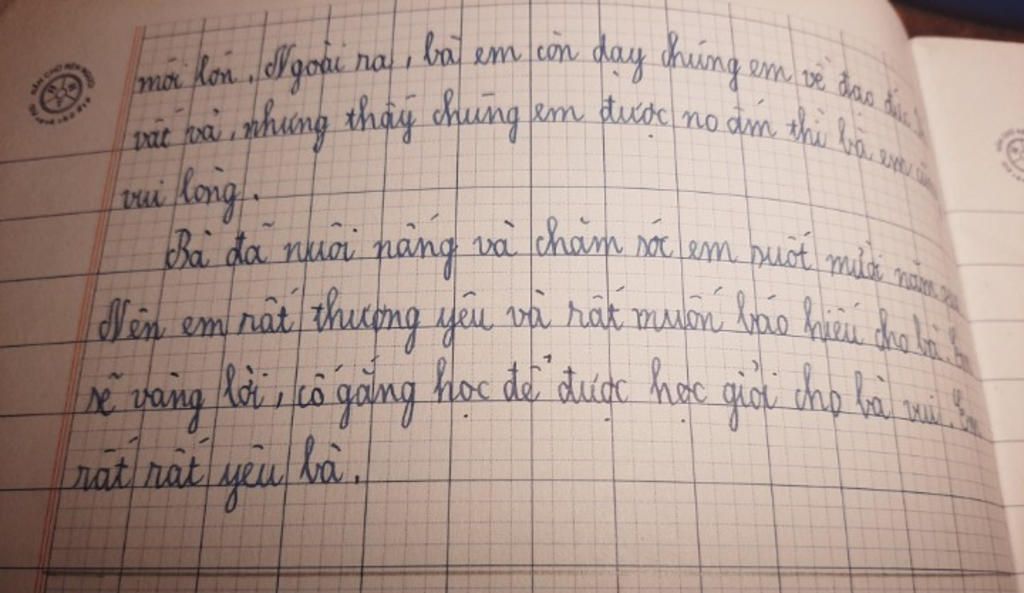 mới lớn. Ngoài ra, bà em còn dạy chúng em về đạo đức.
vất vả, nhưng thấy chúng em được no ấm thì bà em cũng
vui lòng.
Bà đã nuôi nấng và chăm sóc em suốt mười năm
Nên em rất thương yêu và rất muốn báo hiếu cho bà. Em
sẽ vâng lời, cố gắng học để được học giỏi cho bà vui. Em
rất rất yêu bà.